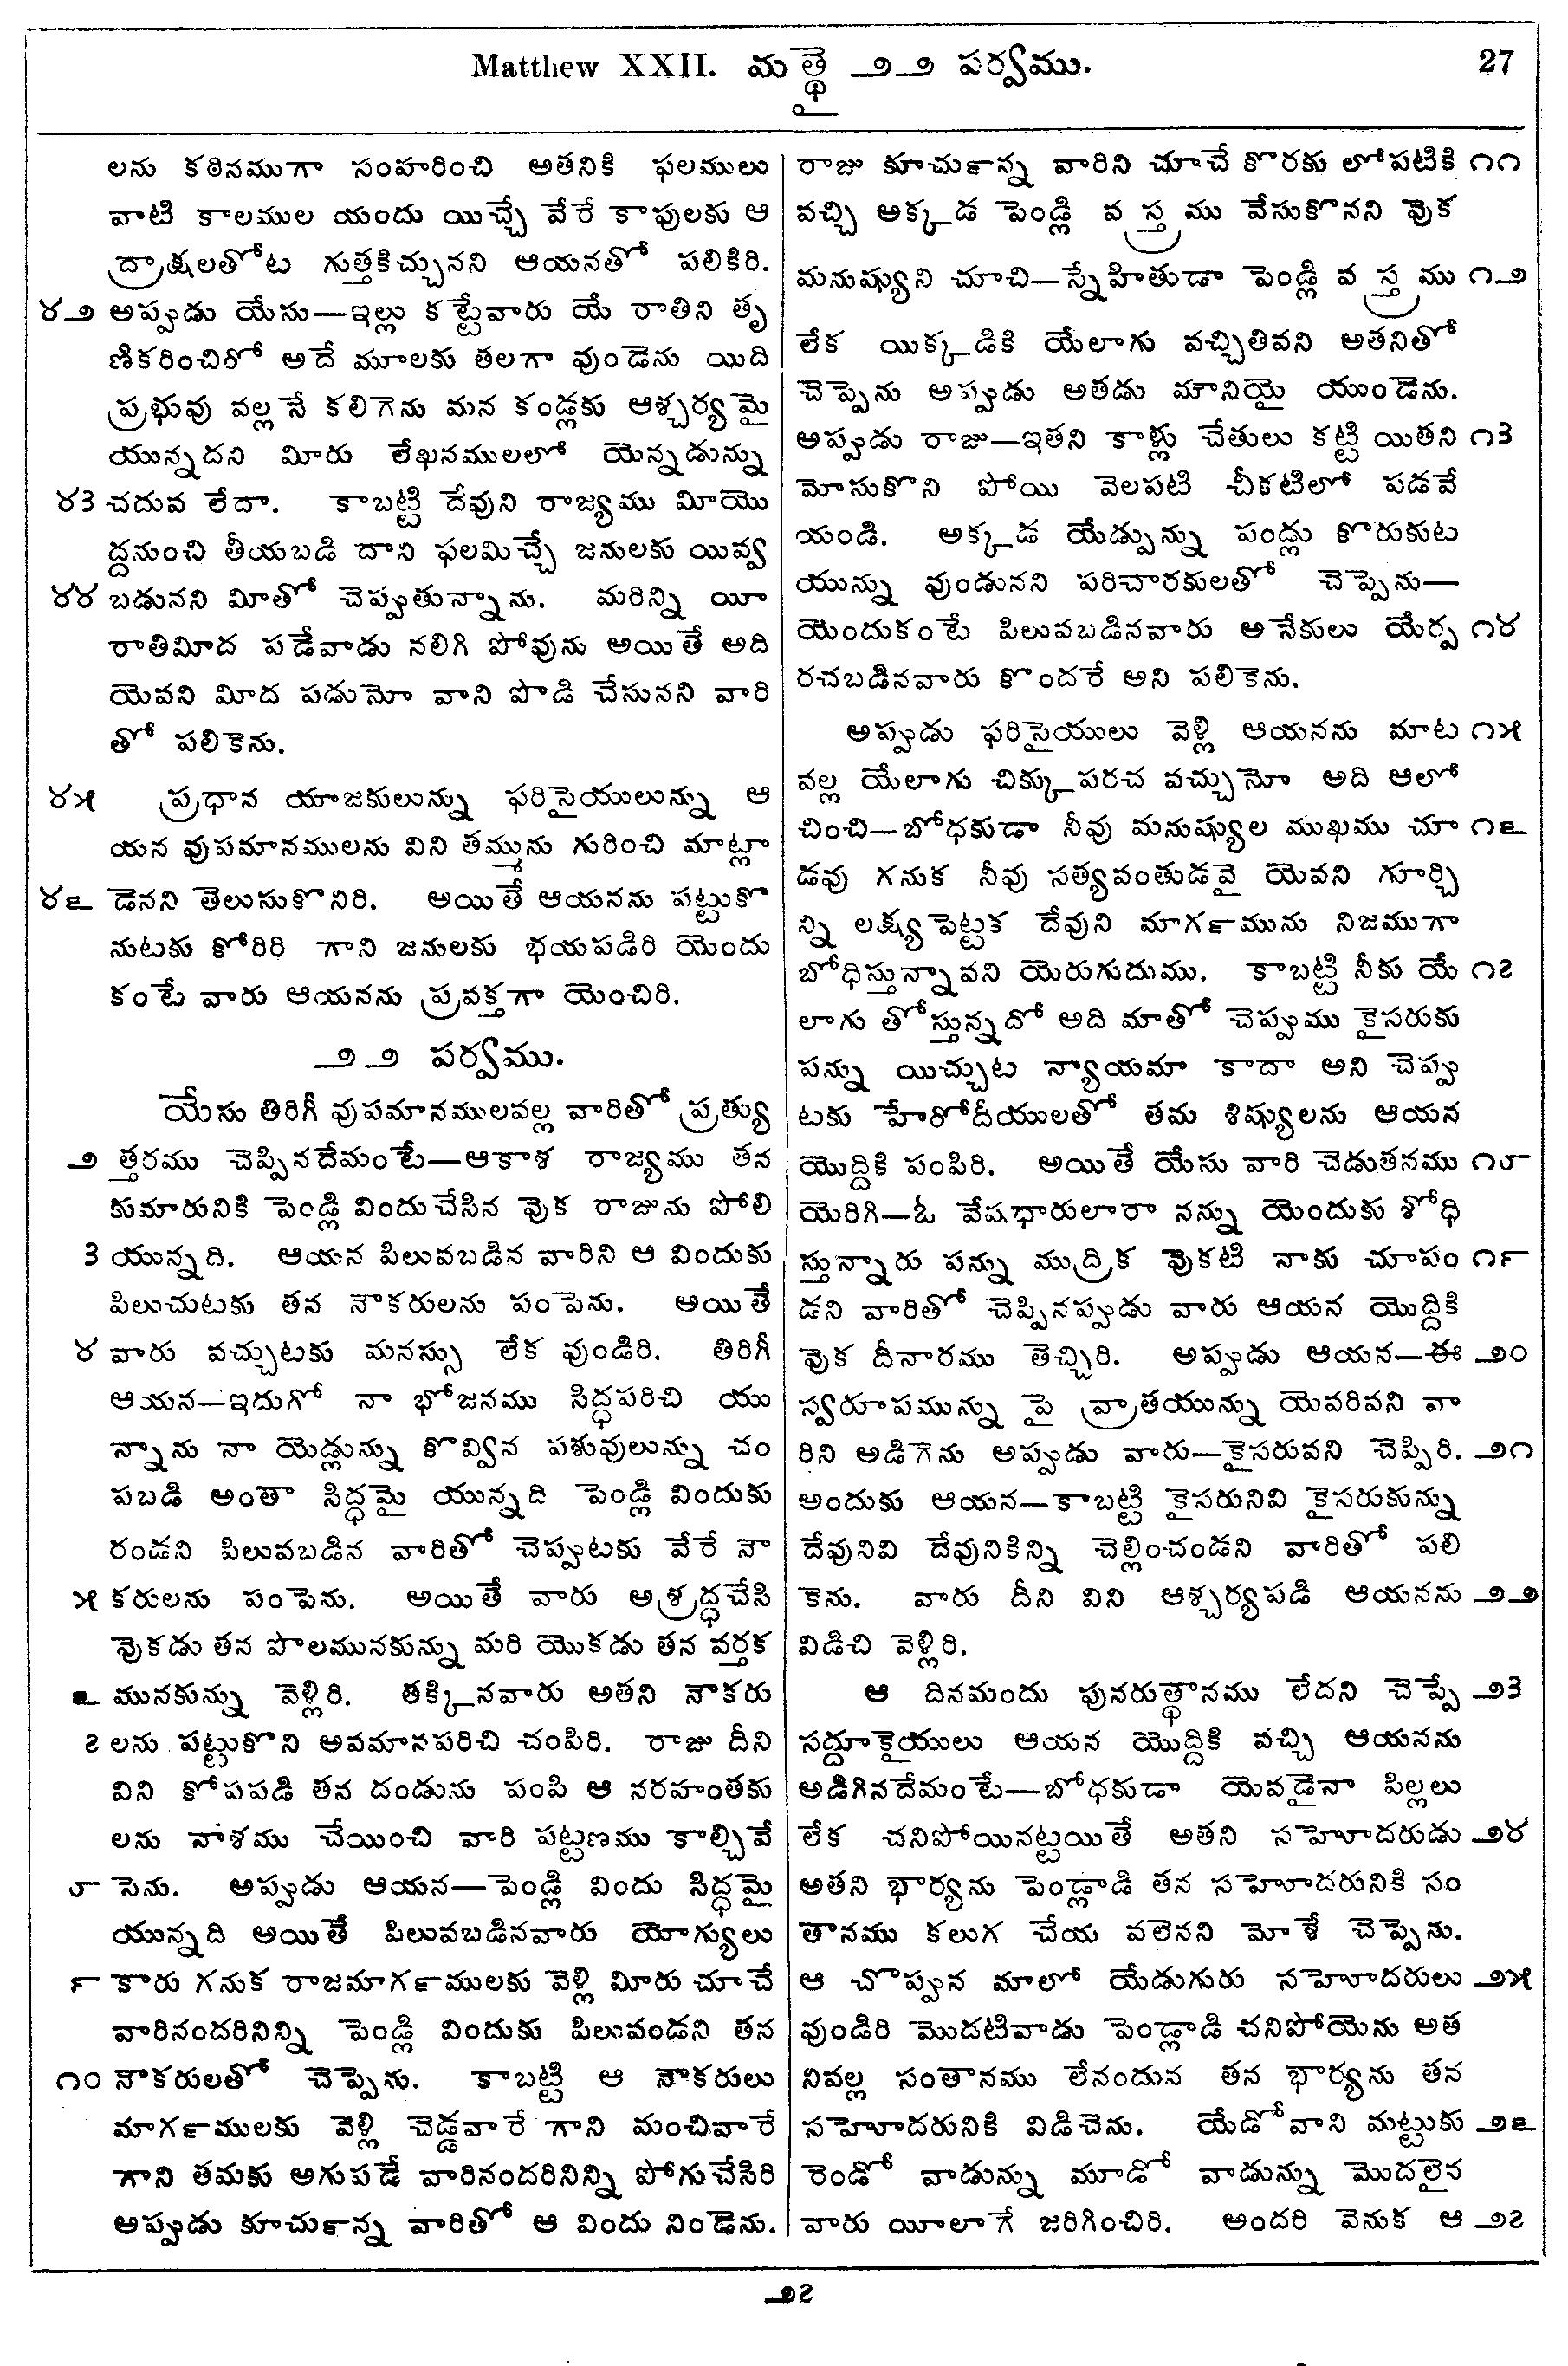 Matthew XXII. మత్థై ౨౨ పర్వము. 27
లను కఠినముగా సంహరించి అతనికి ఫలములు
వాటి కాలముల యందు యిచ్చే వేరే కాపులకు ఆ
ద్రాక్షలతోట గుత్తకిచ్చునని ఆయనతో పలికిరి.
౪౨ అప్పుడు యేసు—ఇల్లు కట్టేవారు యే రాతిని తృ
ణికరించిరో అదే మూలకు తలగా వుండెను యిది
ప్రభువు వల్లనే కలిగెను మన కండ్లకు ఆశ్చర్యమై
యున్నదని మీరు లేఖనములలో యెన్నడున్ను
౪౩ చదువ లేదా. కాబట్టి దేవుని రాజ్యము మీయొ
ద్దనుంచి తీయబడి దాని ఫలమిచ్చే జనులకు యివ్వ
౪౪ బడునని మీతో చెప్పుతున్నాను. మరిన్ని యీ
రాతిమీద పడేవాడు నలిగి పోవును అయితే అది
యెవని మీద పడునో వాని పొడి చేసునని వారి
తో పలికెను.
౪౫ ప్రధాన యాజకులున్ను ఫరిసైయులున్ను ఆ
యన వుపమానములను విని తమ్మును గురించి మాట్లా
౪౬ డెనని తెలుసుకొనిరి. అయితే ఆయనను పట్టుకొ
నుటకు కోరిరి గాని జనులకు భయపడిరి యెందు
కంటే వారు ఆయనను ప్రవక్తగా యెంచిరి.
౨౨ పర్వము.
యేసు తిరిగీ వుపమానములవల్ల వారితో ప్రత్యు
౨ త్తరము చెప్పినదేమంటే—ఆకాళ రాజ్యము తన
కుమారునికి పెండ్లి విందుచేసిన వొక రాజును పోలి
౩ యున్నది. ఆయన పిలువబడిన వారిని ఆ విందుకు
పిలుచుటకు తన నౌకరులను పంపెను. అయితే
౪ వారు వచ్చుటకు మనస్సు లేక వుండిరి. తిరిగీ
ఆయన—ఇదుగో నా భోజనము సిద్ధపరిచి యు
న్నాను నా యెడ్లున్ను కొవ్విన పశువులున్ను చం
పబడి అంతా సిద్ధమై యున్నది పెండ్లి విందుకు
రండని పిలువబడిన వారితో చెప్పుటకు వేరే నౌ
౫ కరులను పంపెను. అయితే వారు అశ్రద్ధచేసి
వొకడు తన పొలమునకున్ను మరి యొకడు తన వర్తక
౬ మునకున్ను వెళ్లిరి. తక్కినవారు అతని నౌకరు
౭ లను పట్టుకొని అవమానపరిచి చంపిరి. రాజు దీని
విని కోపపడి తన దండును పంపి ఆ నరహంతకు
లను నాళము చేయించి వారి పట్టణము కాల్చివే
౮ సెను. అప్పుడు ఆయన—పెండ్లి విందు సిద్ధమై
యున్నది అయితే పిలువబడినవారు యోగ్యులు
౯ కారు గనుక రాజమార్గములకు వెళ్లి మీరు చూచే
వారినందరినిన్ని పెండ్లి విందుకు పిలువండని తన
౧౦ నౌకరులతో చెప్పెను. కాబట్టి ఆ నౌకరులు
మార్గములకు వెళ్లి చెడ్డవారే గాని మంచివారే
గాని తమకు అగుపడే వారినందరినిన్ని పోగుచేసిరి
అప్పుడు కూచుర్న్న వారితో ఆ విందు నిండెను.
రాజు కూచుర్న్న వారిని చూచే కొరకు లోపటికి ౧౧
వచ్చి అక్కడ పెండ్లి వస్త్రము వేసుకొనని వొక
మనుష్యుని చూచి—స్నేహితుడా పెండ్లి వస్త్రము ౧౨
లేక యిక్కడికి యేలాగు వచ్చితివని అతనితో
చెప్పెను అప్పుడు అతడు మౌనియై యుండెను.
అప్పుడు రాజు—ఇతని కాళ్లు చేతులు కట్టి యితని ౧౩
మోసుకొని పోయి వెలపటి చీకటిలో పడవే
యండి. అక్కడ యేడ్పున్ను పండ్లు కొరుకుట
యున్ను వుండునని పరిచారకులతో చెప్పెను—
యెందుకంటే పిలువబడినవారు అనేకులు యేర్ప ౧౪
రచబడినవారు కొందరే అని పలికెను.
అప్పుడు ఫరిసైయులు వెళ్లి ఆయనను మాట ౧౫
వల్ల యేలాగు చిక్కుపరచ వచ్చునో అది ఆలో
చించి—బోధకుడా నీవు మనుష్యుల ముఖము చూ ౧౬
డవు గనుక నీవు సత్యవంతుడవై యెవని గూర్చి
న్ని లక్ష్యపెట్టక దేవుని మార్గమును నిజముగా
బోధిస్తున్నావని యెరుగుదుము. కాబట్టి నీకు యే ౧౭
లాగు తోస్తున్నదో అది మాతో చెప్పుము కైసరుకు
పన్ను యిచ్చుట న్యాయమా కాదా అని చెప్పు
టకు హేరోదీయులతో తమ శిష్యులను ఆయన
యొద్దికి పంపిరి. అయితే యేసు వారి చెడుతనము ౧౮
యెరిగి—ఓ వేషధారులారా నన్ను యెందుకు శోధి
స్తున్నారు పన్ను ముద్రిక వొకటి నాకు చూపం ౧౯
డని వారితో చెప్పినప్పుడు వారు ఆయన యొద్దికి
వొక దీనారము తెచ్చిరి. అప్పుడు ఆయన—ఈ ౨౦
స్వరూపమున్ను పై వ్రాతయున్ను యెవరివని వా
రిని అడిగెను అప్పుడు వారు—కైసరువని చెప్పిరి. ౨౧
అందుకు ఆయన—కాబట్టి కైసరునివి కైసరుకున్ను
దేవునివి దేవునికిన్ని చెల్లించండని వారితో పలి
కెను. వారు దీని విని ఆశ్చర్యపడి ఆయనను ౨౨
విడిచి వెళ్లిరి.
ఆ దినమందు పునరుత్థానము లేదని చెప్పే ౨౩
సద్దూకైయులు ఆయన యొద్దికి వచ్చి ఆయనను
అడిగినదేమంటే—బోధకుడా యెవడైనా పిల్లలు
లేక చనిపోయినట్టయితే అతని సహోదరుడు ౨౪
అతని భార్యను పెండ్లాడి తన సహోదరునికి సం
తానము కలుగ చేయ వలెనని మోశే చెప్పెను.
ఆ చొప్పున మాలో యేడుగురు సహోదరులు ౨౫
వుండిరి మొదటివాడు పెండ్లాడి చనిపోయెను అత
నివల్ల సంతానము లేనందున తన భార్యను తన
సహోదరునికి విడిచెను. యేడోవాని మట్టుకు ౨౬
రెండో వాడున్ను మూడో వాడున్ను మొదలైన
వారు యీలాగే జరిగించిరి. అందరి వెనుక ఆ ౨౭
౨౭